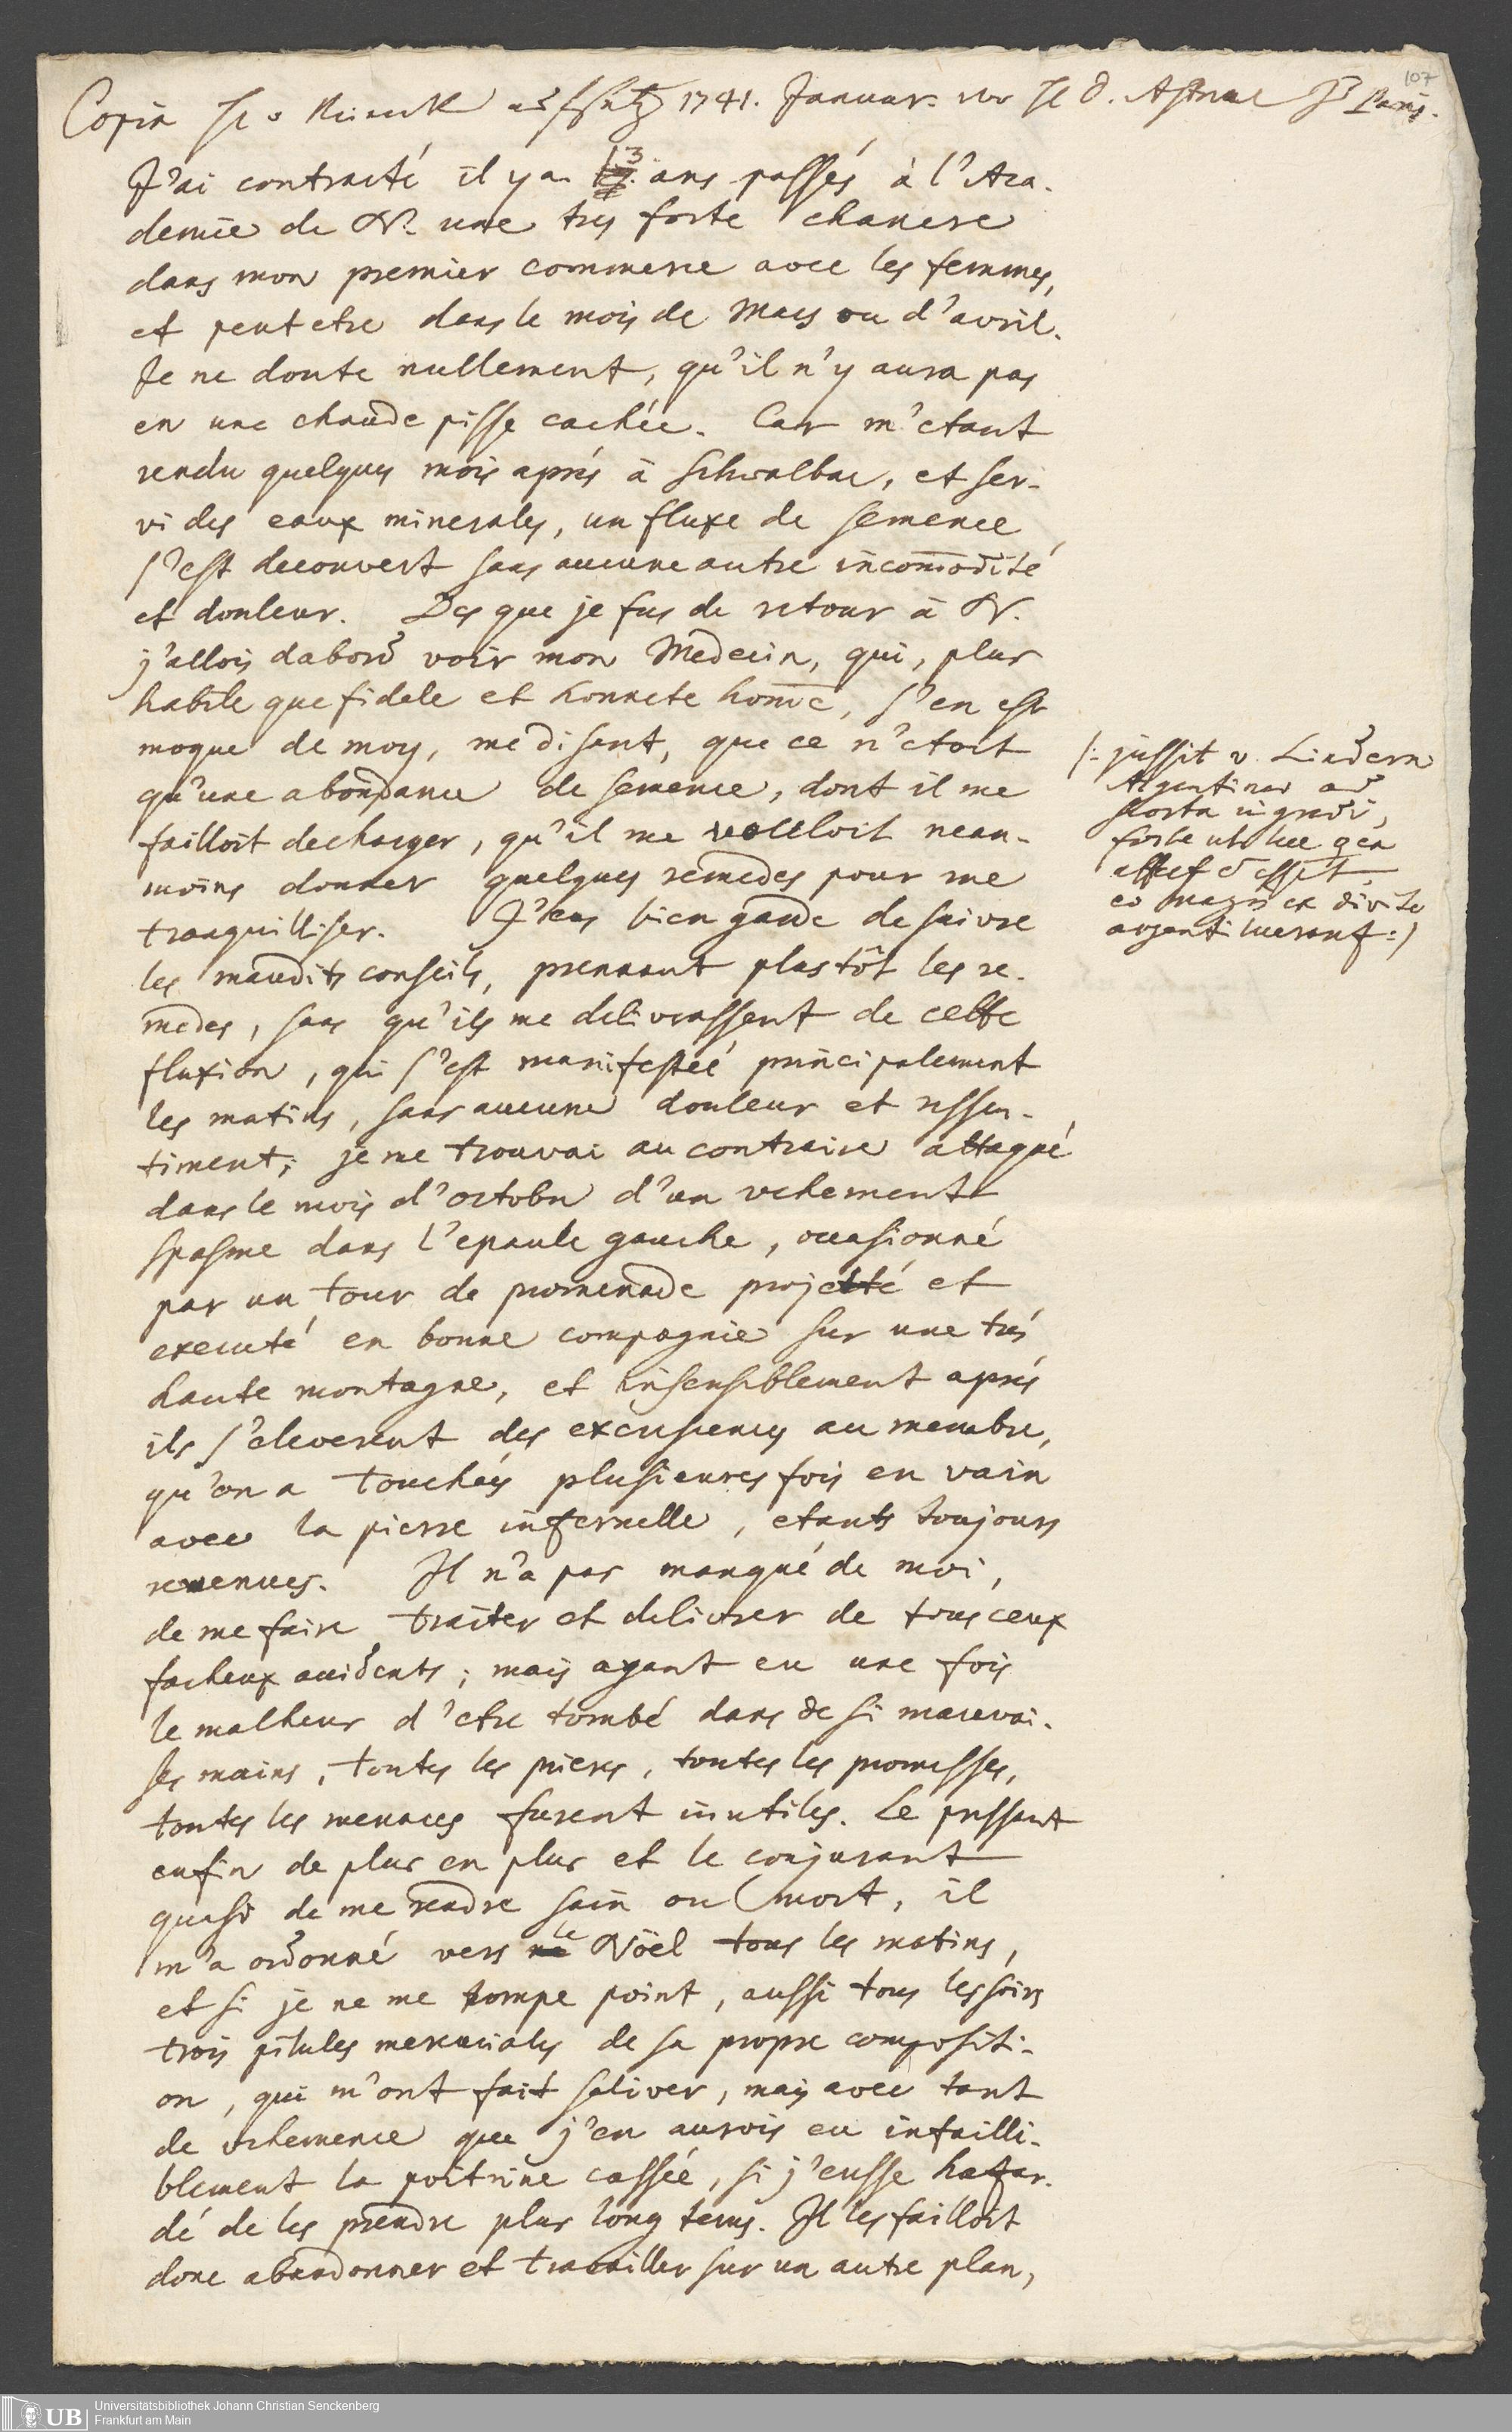 107
Copia 1741. Januar. D. Astruc Paris.
J'ai contracté il y a 13 ans passés à l'Aca-
demie de N. une tres forte chancre
dans mon premier commerce avec les femmes,
et peut etre dans le mois de Mars ou d'avril.
Je ne doute nullement, qu'il n'y aura pas
eu une chaude pisse cachée. Car m'etant
rendu quelques mois aprés à Schwalbac, et ser-
vi des eaux minerales, un fluxe de semence
s'est decouvert sans aucune autre incom̄odité
et douleur. Des que je fus de retour à N.
j'allois dabord voir mon Medecin, qui, plus
habile que fidele et honnete hom̄e, s'en est
moqué de moy, me disant, que ce n'etoit
qu'une abondance de semence, dont il me
failloit decharger, qu'il me voulloit nean-
moins donner quelques remedes pour me
tranquilliser. J'eus bien garde de suivre
les maudits conseils, prennant plustôt les re-
medes, sans qu'ils me delivrassent de cette
fluxion, qui s'est manifestée principalement
les matins, sans aucune douleur et ressen-
timent; je me trouvai au contraire attaqué
dans le mois d'octobre d'un vehement
spasme dans l'epaule gauche, occasionné
par un tour de promenade projetté et
executé en bonne compagnie sur une trés
haute montagne, et insensiblement aprés
ils s'eleverent des excrescences au membre,
qu'on a touchées plusieures fois en vain
avec la pierre infernelle, etants toujours
revenues. Il n'a pas manqué de moi,
de me faire traiter et delivrer de tous ceux
facheux accidents; mais ayant eu une fois
le malheur d'etre tombé dans de si mauvai-
ses mains, toutes les prieres, toutes les promesses,
toutes les menaces furent inutiles. Le pressant
enfin de plus en plus et le conjurant
quasi de me rendre sain ou mort, il
m'a ordonné vers le Nöel tous les matins,
et si je ne me trompe point, aussi tous les soirs
trois pilules mercuriales de sa propre compositi-
on, qui m'ont fait saliver, mais avec tant
de vehemence que j'en aurois eu infailli-
blement la poitrine cassée, si j'eusse hazar-
dé de les prendre plus long tems. Il les failloit
donc abandonner et travailler sur un autre plan,
/: jussit v. Lindern
Argentinae ad
scorta ingredi,
forte ut lue
eo magis ex divite
argenti lucrant :/
UB Universitätsbibliothek Johann Christian Senckenberg
Frankfurt am Main